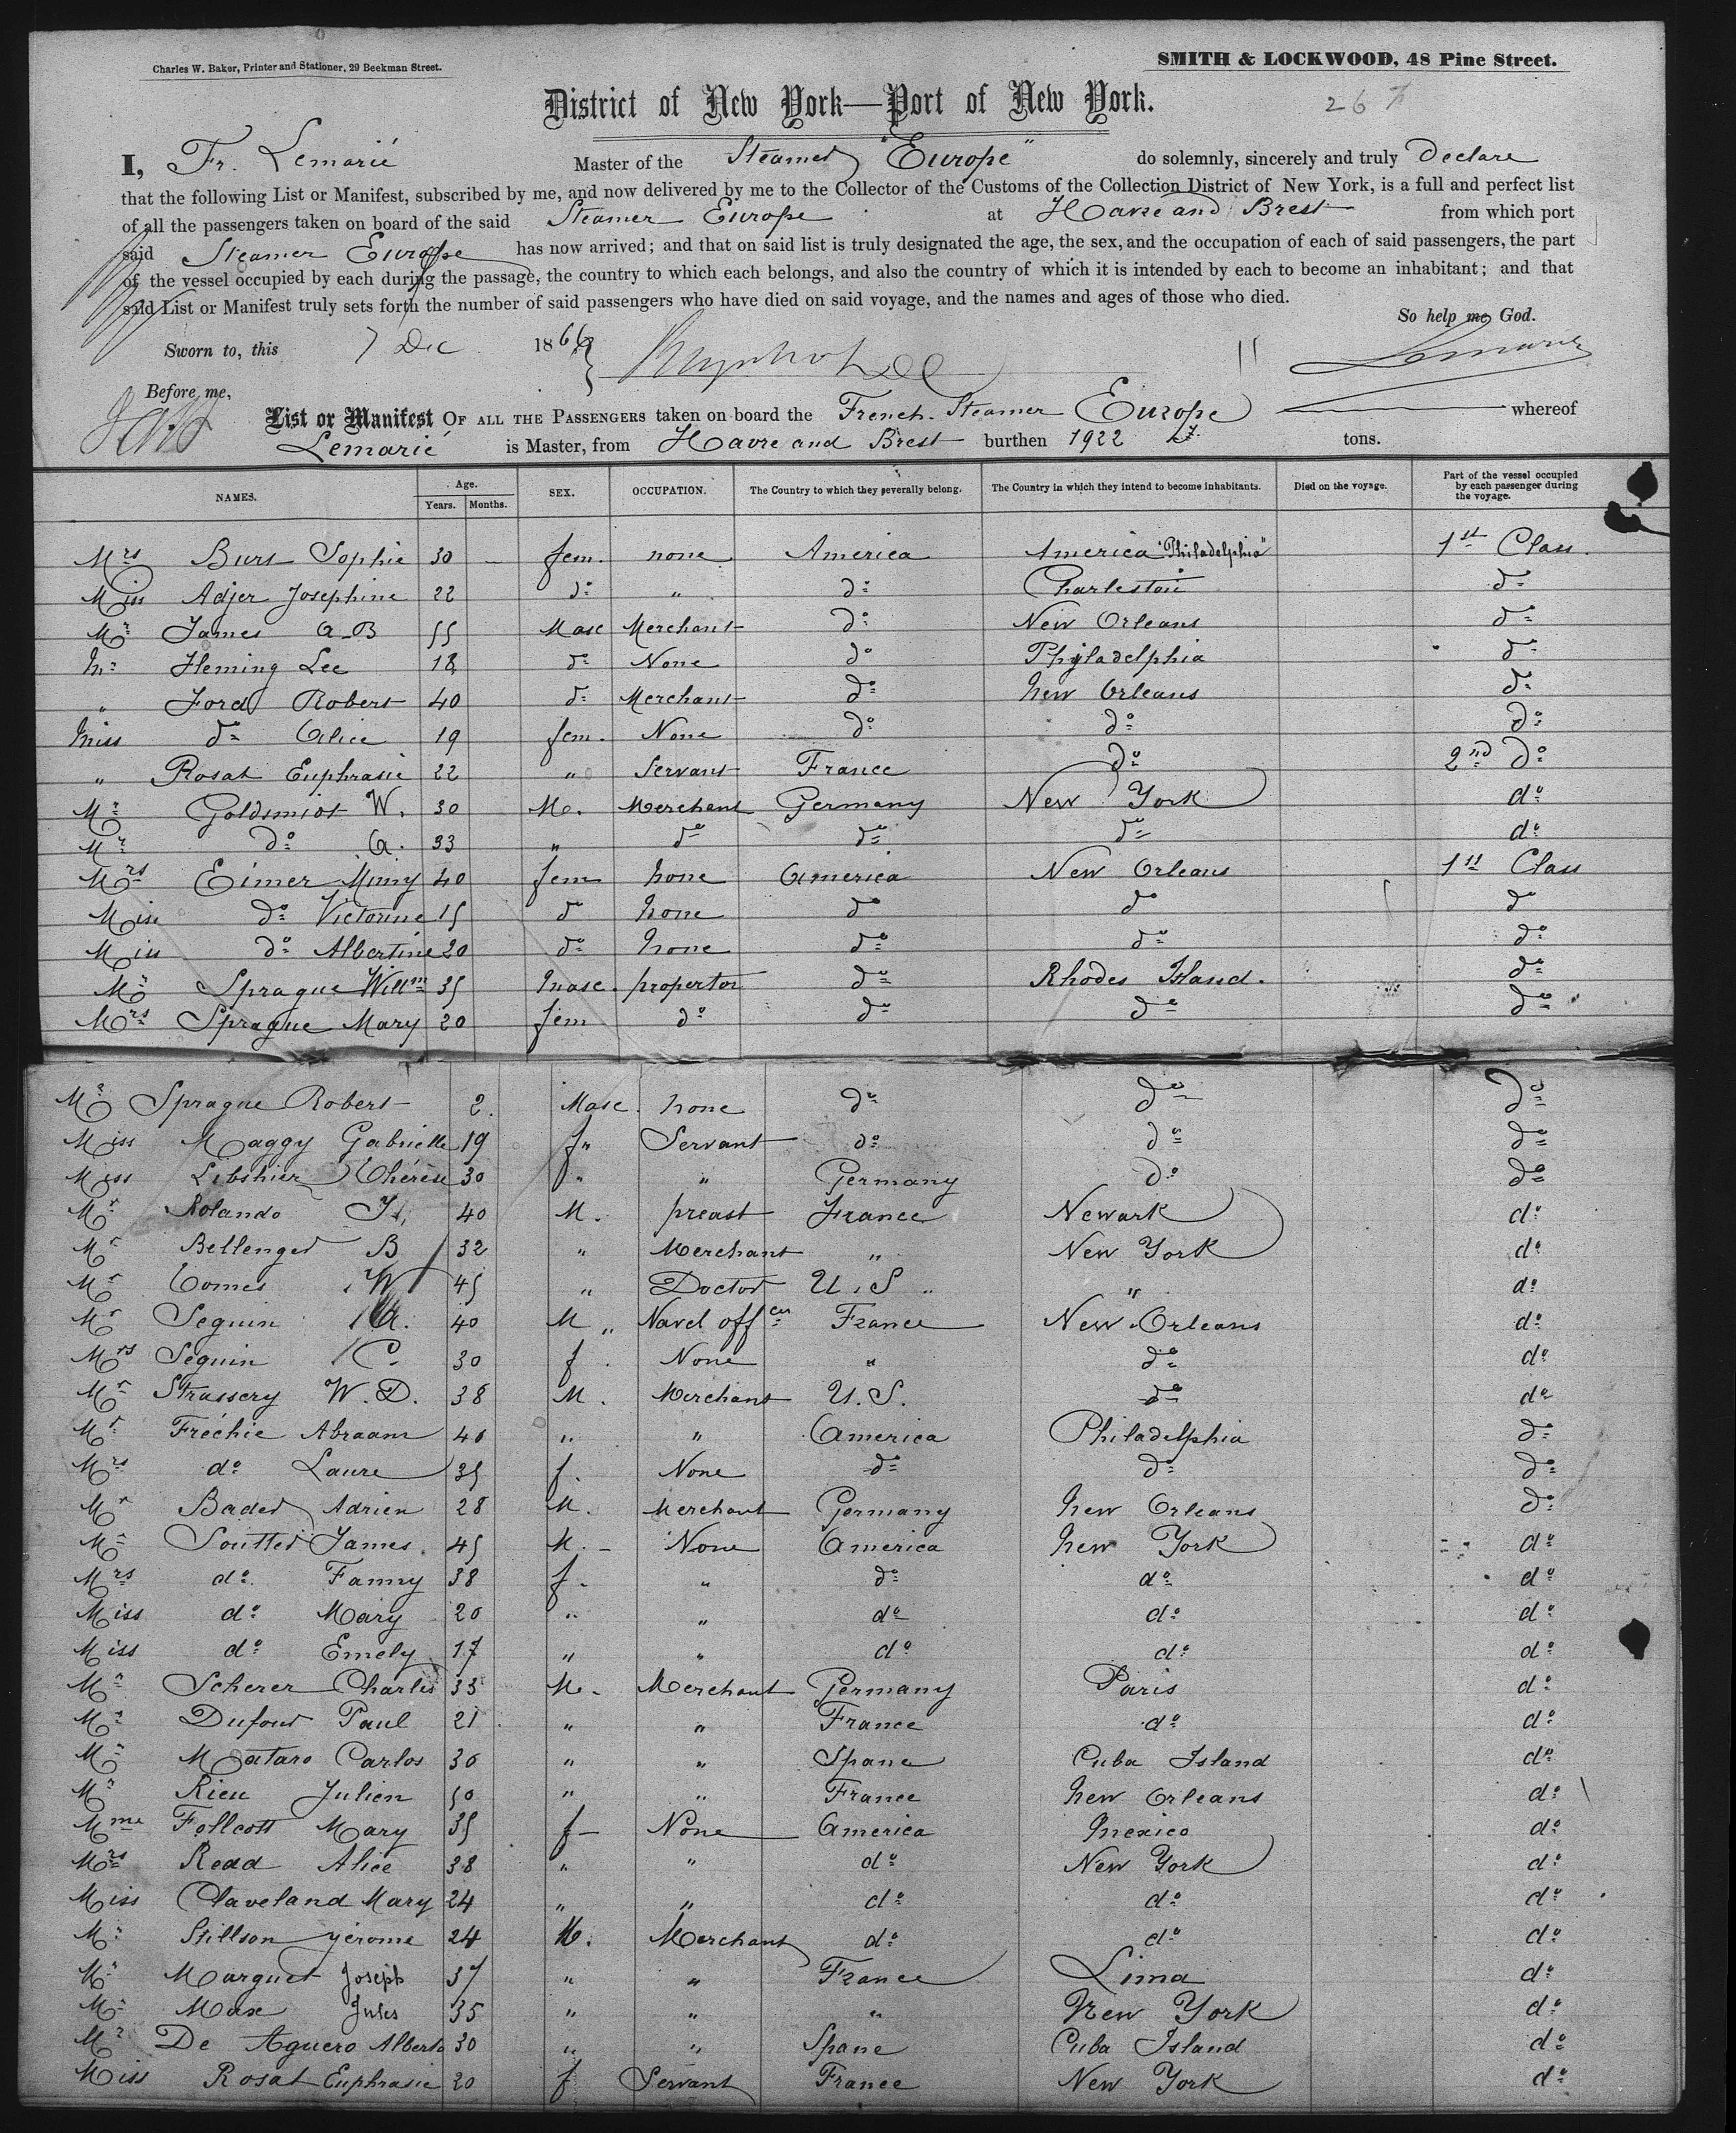 Charles W. Baker, Printer and Stationer, 29 Beekman Street.
SMITH & LOCKWOOD, 48 Pine Street.
District of New York—Port of New York.
26
I, Fr. Lemarié Master of the Steamer "Europe" do solemnly, sincerely and truly Declare
that the following List or Manifest, subscribed by me, and now delivered by me to the Collector of the Customs of the Collection District of New York, is a full and perfect list
of all the passengers taken on board of the said Steamer Europe at Havre and Brest from which port
said Steamer Europe has now arrived; and that on said list is truly designated the age, the sex, and the occupation of each of said passengers, the part
of the vessel occupied by each during the passage, the country to which each belongs, and also the country of which it is intended by each to become an inhabitant; and that
said List or Manifest truly sets forth the number of said passengers who have died on said voyage, and the names and ages of those who died.
So help me God.
Sworn to, this 7 Dec 1866 Lemarié
Before me,
List or Manifest OF ALL THE PASSENGERS taken on board the French Steamer Europe whereof
Lemarié is Master, from Havre and Brest burthen 1922 tons.
NAMES. Age. Years. Months. SEX. OCCUPATION. The Country to which they severally belong. The Country in which they intend to become inhabitants. Died on the voyage. Part of the vessel occupied by each passenger during the voyage.
Mrs Burs Sophie 30 – fem. none America America "Philadelphia" 1st Class.
Miss Adjer Josephine 22 do " do Charleston do
Mr James A-B 55 Masc Merchant do New Orleans do
Mr Fleming Lee 18 do None do Philadelphia do
" Ford Robert 40 do Merchant do New Orleans do
Miss do Alice 19 fem. None do do do
" Rosat Euphrasie 22 " Servant France do 2nd do
Mr Goldsmiot W. 30 M. Merchant Germany New York do
Mr do A. 33 " do do do do
Mrs Eimer Minny 40 fem none America New Orleans 1st Class
Miss do Victorine 15 do none do do do
Miss do Albertine 20 do none do do do
Mr Sprague Willm 35 masc. propertor do Rhodes Island. do
Mrs Sprague Mary 20 fem do do do do
Mr Sprague Robert 2. Masc. none do do do
Miss Maggy Gabrielle 19 f" Servant do do do
Miss Libshier Thérèse 30 f" " Germany do do
Mr Rolando 40 M. preast France Newark do
Mr Bellenger B 32 " Merchant " New York do
Mr Comes W 45 " Doctor U.S " " do
Mr Seguin A. 40 M " Navel offcer France New Orleans do
Mrs Seguin C. 30 f. None " do do
Mr Strassery W.D. 38 M. Merchant U.S. do do
Mr Fréchie Abraam 40 " " America Philadelphia do
Mrs do Laure 35 f. None do do do
Mr Bader Adrien 28 M. Merchant Germany New Orleans do
Mr Soutter James. 45 M. – None America New York do
Mrs do Fanny 38 f. " do do do
Miss do Mary 20 " " do do do
Miss do Emely 17 " " do do do
Mr Scherer Charles 33 M. Merchant Germany Paris do
Mr Dufour Paul 21 " " France do do
Mr Mataro Carlos 30 " " Spane Cuba Island do
Mr Rieu Julien 50 " " France New Orleans do
Mme Follcott Mary 35 f – None America Mexico do
Mrs Read Alice 38 " " do New York do
Miss Claveland Mary 24 " " do do do
Mr Stillson yérome 24 M. Merchant do do do
Mr Marquet Joseph 37 " " France Lima do
Mr Max Jules 35 " " " New York do
Mr De Aguero Alberto 30 " " Spane Cuba Island do
Miss Rosat Euphrasie 20 f Servant France New York do